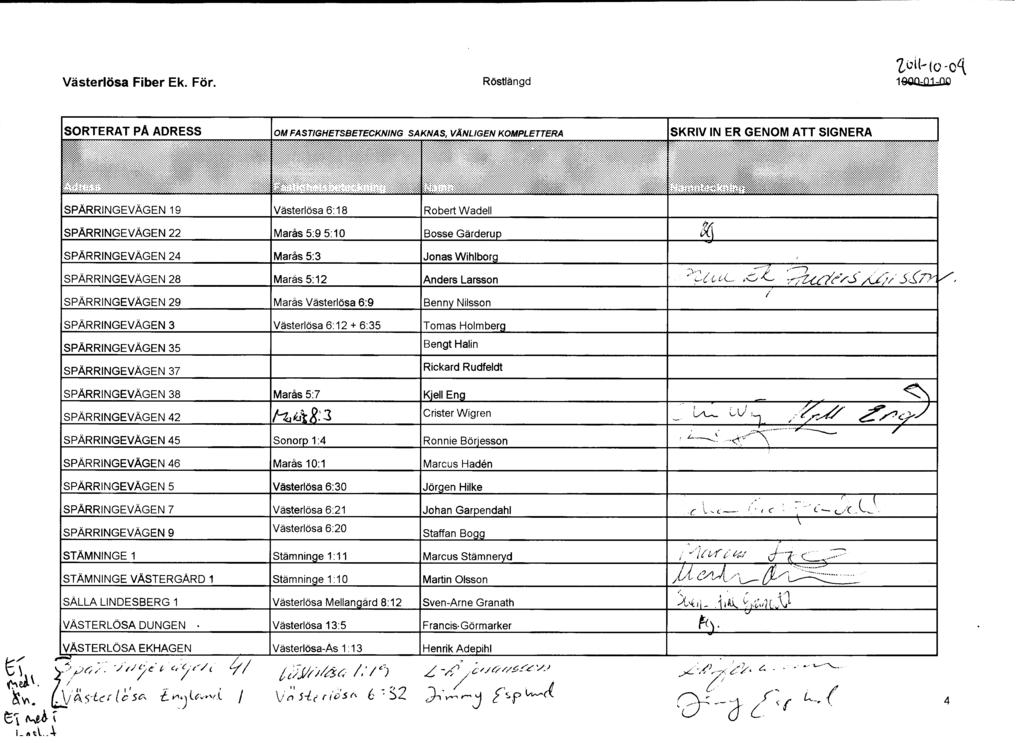 2011-10-09
Västerlösa Fiber Ek. För. Röstlängd 1900-01-00
SORTERAT PÅ ADRESS OM FASTIGHETSBETECKNING SAKNAS, VÄNLIGEN KOMPLETTERA SKRIV IN ER GENOM ATT SIGNERA
Adress Fastighetsbeteckning Namn Namnteckning
SPÄRRINGEVÄGEN 19 Västerlösa 6:18 Robert Wadell
SPÄRRINGEVÄGEN 22 Marås 5:9 5:10 Bosse Gärderup
SPÄRRINGEVÄGEN 24 Marås 5:3 Jonas Wihlborg
SPÄRRINGEVÄGEN 28 Marås 5:12 Anders Larsson Anders Larsson
SPÄRRINGEVÄGEN 29 Marås Västerlösa 6:9 Benny Nilsson
SPÄRRINGEVÄGEN 3 Västerlösa 6:12 + 6:35 Tomas Holmberg
SPÄRRINGEVÄGEN 35 Bengt Halin
SPÄRRINGEVÄGEN 37 Rickard Rudfeldt
SPÄRRINGEVÄGEN 38 Marås 5:7 Kjell Eng
SPÄRRINGEVÄGEN 42 8:3 Crister Wigren Kjell Eng
SPÄRRINGEVÄGEN 45 Sonorp 1:4 Ronnie Börjesson
SPÄRRINGEVÄGEN 46 Marås 10:1 Marcus Hadén
SPÄRRINGEVÄGEN 5 Västerlösa 6:30 Jörgen Hilke
SPÄRRINGEVÄGEN 7 Västerlösa 6:21 Johan Garpendahl
SPÄRRINGEVÄGEN 9 Västerlösa 6:20 Staffan Bogg
STÄMNINGE 1 Stämninge 1:11 Marcus Stämneryd Marcus
STÄMNINGE VÄSTERGÅRD 1 Stämninge 1:10 Martin Olsson
SÄLLA LINDESBERG 1 Västerlösa Mellangård 8:12 Sven-Arne Granath
VÄSTERLÖSA DUNGEN Västerlösa 13:5 Francis Görmarker
VÄSTERLÖSA EKHAGEN Västerlösa-Ås 1:13 Henrik Adepihl
Ej Spärringevägen 41 Västerlösa 1:19 L-O Johansson
medl.
än. Västerlösa England 1 Västerlösa 6:32 Jimmy Esplund Jimmy Esplund
Ej med i 4